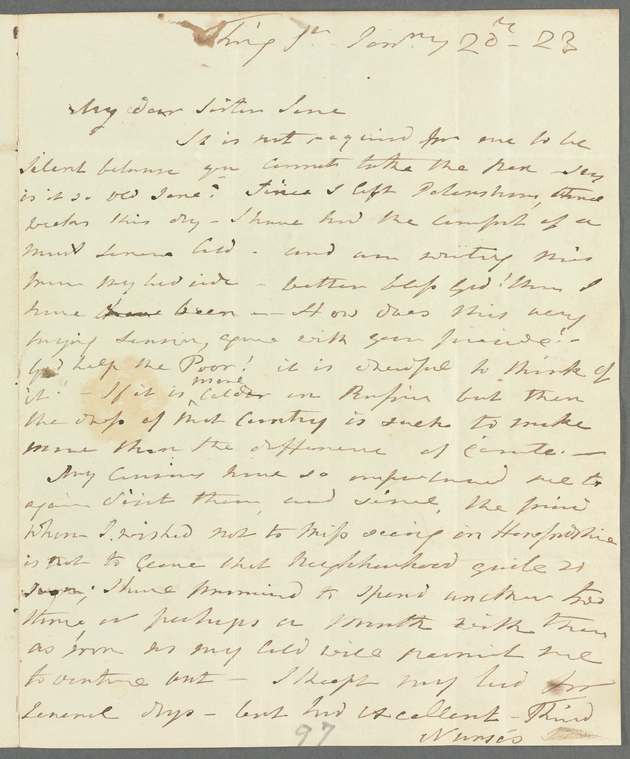 King St - Janry 20th - 23
My dear Sister Jane
It is not required for me to be
silent because you cannot take the Pen - say
is it so old Jane? Since I left Petersham, three
weeks this day - I have had the comfort of a
most severe Cold - and am writing this
from my bed side - better bless God! than I
have been - How does this very
trying Season, agree with your friends? -
God help the Poor! it is dreadful to think of
it! - If it is more Colder in Russia but then
the dress of that Country is such to make
more than the difference of Climate. -
My Cousins have so importuned me to
again visit them, and since, the friend
whom I wished not to miss seeing in Herefordshire
is not to leave that Neighbourhood quite so
soon; I have promised to spend another two
three or perhaps a Month with them
as soon as my Cold will permit me
to venture out - I kept my bed for
several days - but had excellent - Kind
Nurses
97